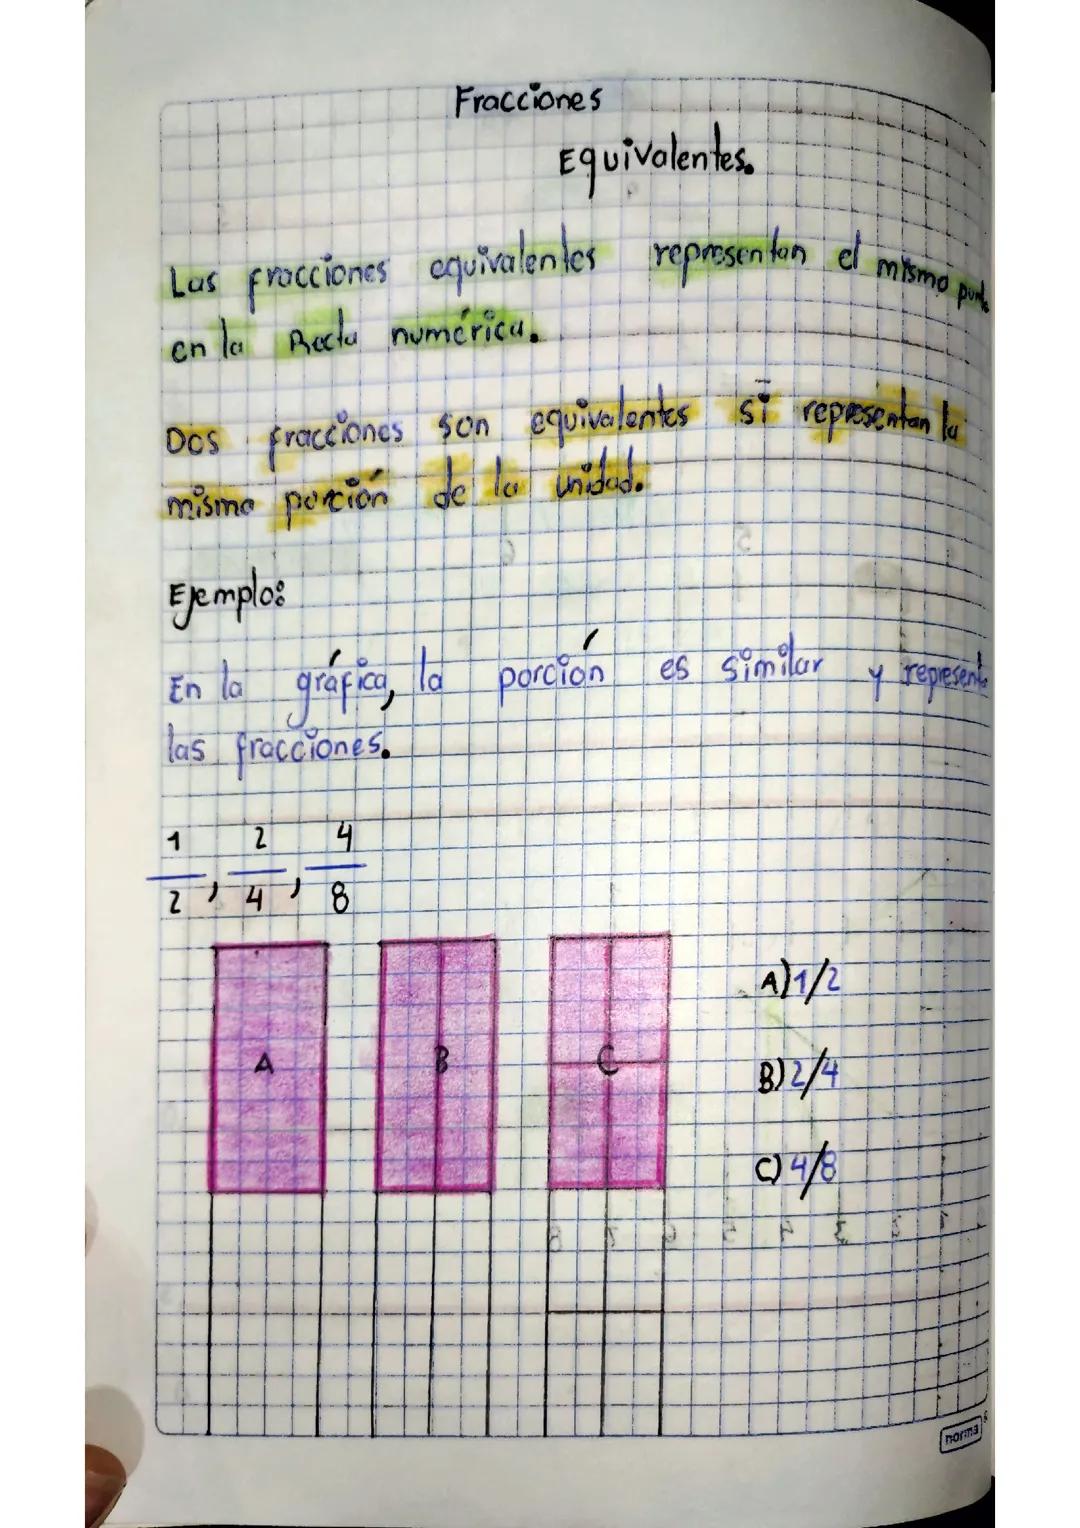 Fracciones
Equivalentes.
Las fracciones equivalentes representan el mismo punto
en la Recta numérica.
Dos fracciones son equivalentes si representan la
misma porción de la unidad.
Ejemplo:
En la gráfica, la porción es similar y represent
las fracciones.
1 2 4
2 , 4 , 8
A B C
A) 1/2
B) 2/4
C) 4/8
norma